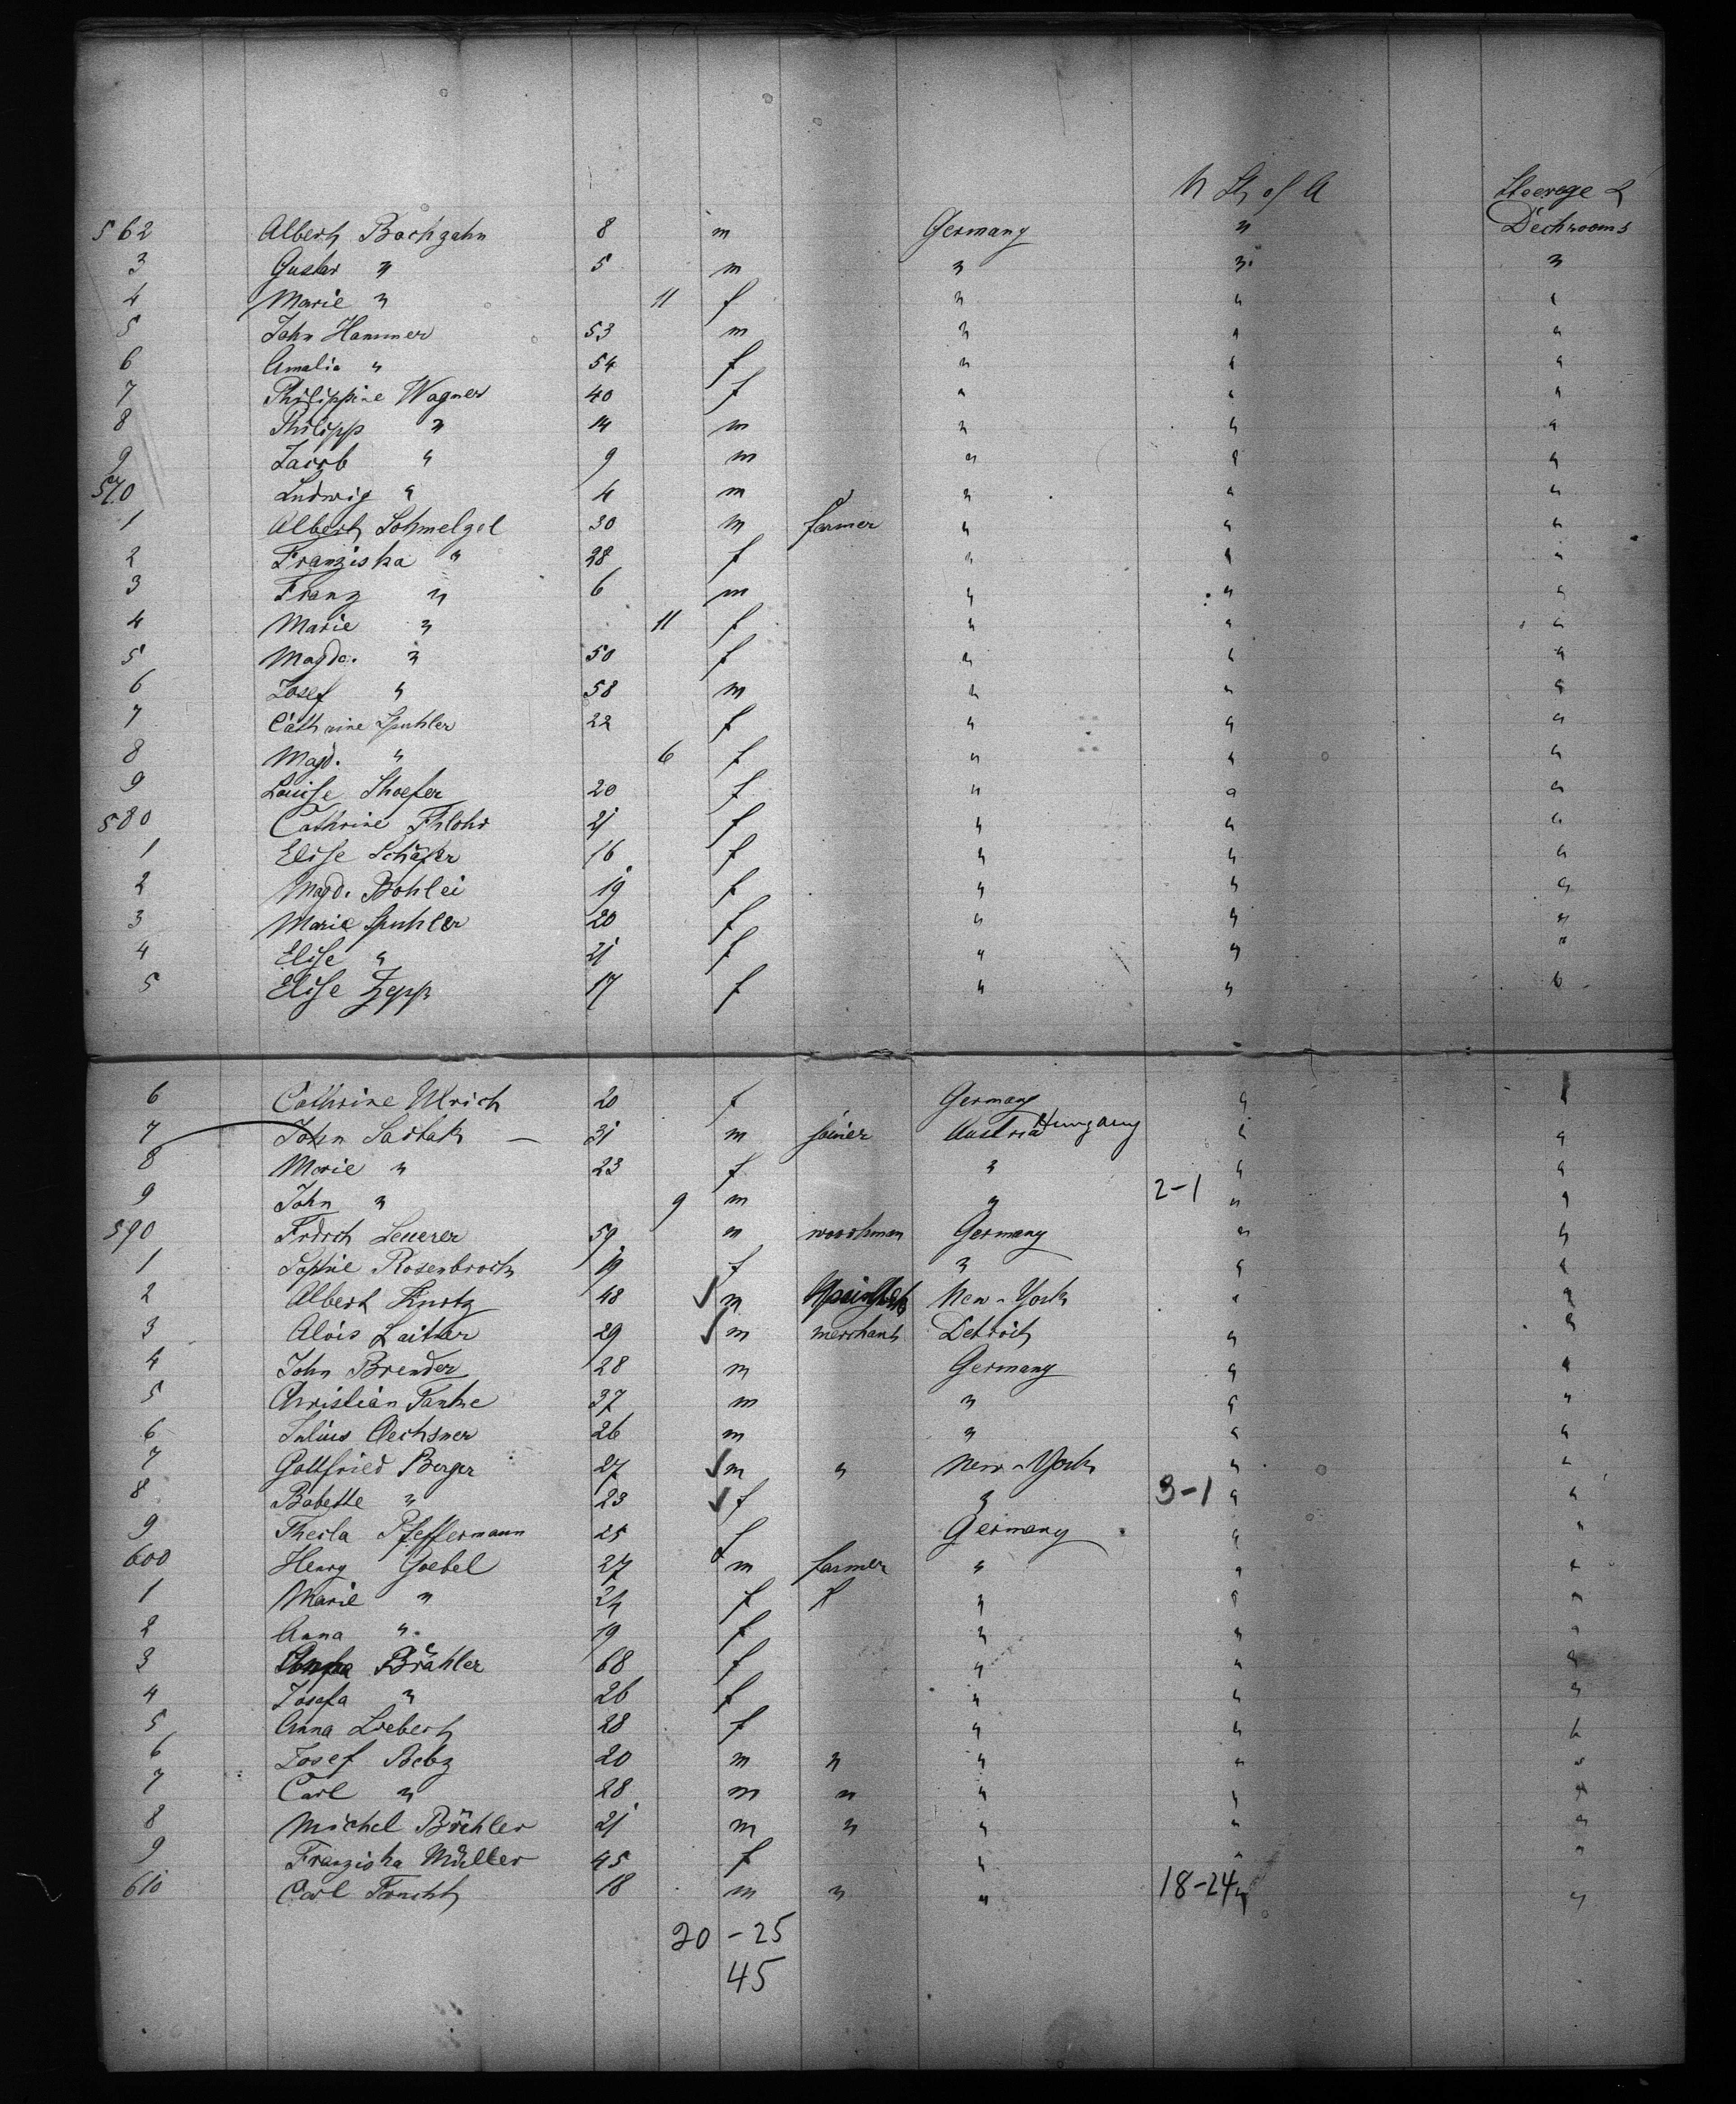 U St. of A Steerage &
562 Albert Bachgahn 8 m Germany " Deckrooms
3 Gustav " 5 m " " "
4 Marie " 11 f " " "
5 John Hammer 53 m " " "
6 Amalia " 54 f " " "
7 Philippine Wagner 40 f " " "
8 Philipp " 14 m " " "
9 Jacob " 9 m " " "
570 Ludwig " 4 m " " "
1 Albert Schmelzel 30 m farmer " " "
2 Franziska " 28 f " " "
3 Franz " 6 m " " "
4 Marie " 11 f " " "
5 Magda. " 50 f " " "
6 Josef " 58 m " " "
7 Cathrine Spuhler 22 f " " "
8 Magd. " 6 f " " "
9 Louise Shoefer 20 f " " "
580 Cathrine 21 f " " "
1 Elise Schäfer 16 f " " "
2 Magd. Bohlei 19 f " " "
3 Marie Spuhler 20 f " " "
4 Elise " 21 f " " "
5 Elise Zepp 17 f " " "
6 Cathrine Ulrich 20 f Germany " "
7 John Sartak — 31 m joiner Austria Hungary " "
8 Marie " 23 f " " "
9 John " 9 m " 2-1 " "
590 Frdrch Leuerer 59 m workman Germany " "
1 Sophie Rosenbrock 19 f " " "
2 Albert Kurtz 48 m New-York " "
3 Alois Laitner 29 m merchant Detroit " "
4 John Brender 28 m Germany " "
5 Christian Fanke 37 m " " "
6 Julius Oechsner 26 m " " "
7 Gottfried Berger 27 m " New-York " "
8 Babette " 23 f " 3-1 " "
9 Thecla Pfeffermann 25 f Germany " "
600 Henry Goebel 27 m farmer " " "
1 Marie " 24 f " " "
2 Anna " 19 f " " "
3 Brähler 68 f " " "
4 Josefa " 26 f " " "
5 Anna Liebert 28 f " " "
6 Josef Bebz 20 m " " " "
7 Carl " 28 m " " " "
8 Michel Brähler 21 m " " " "
9 Franziska Müller 45 f " " "
610 Carl Frucht 18 m " " 18-24 " "
20 - 25
45